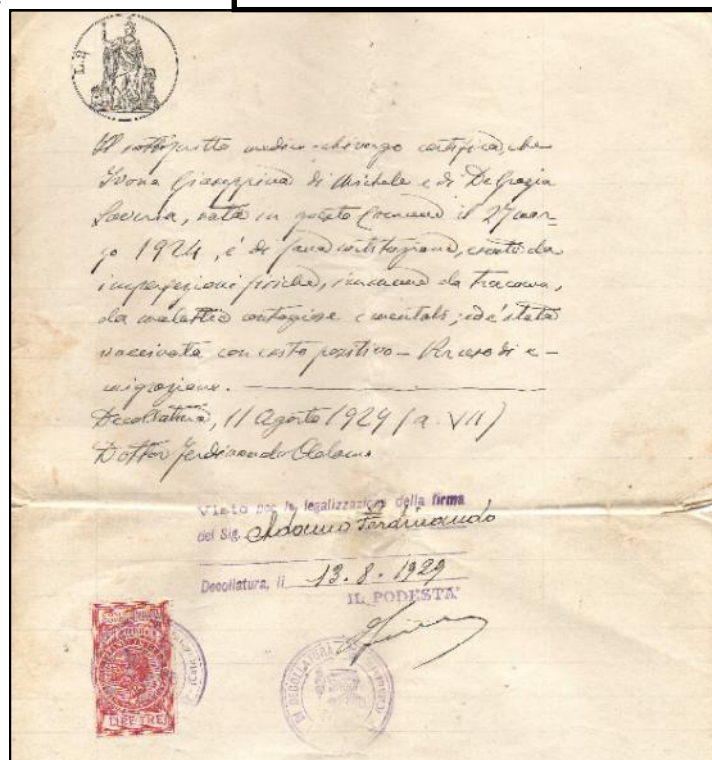 L. 2
Il sottoscritto medico-chirurgo certifica, che
Giuseppina di Michele e di De Grazia
nata in questo Comune il 27 mar-
zo 1924, è di sana costituzione, esente da
imperfezioni fisiche, immune da tracoma,
da malattie contagiose e mentali; ed è stata
vaccinata con esito positivo – Per uso di e-
migrazione.
Decollatura, 11 Agosto 1929 (a. VII)
Dottor Ferdinando Adamo
Visto per la legalizzazione della firma
del Sig. Adamo Ferdinando
Decollatura, li 13.8.1929
IL PODESTA'
DECOLLATURA
LIRE TRE